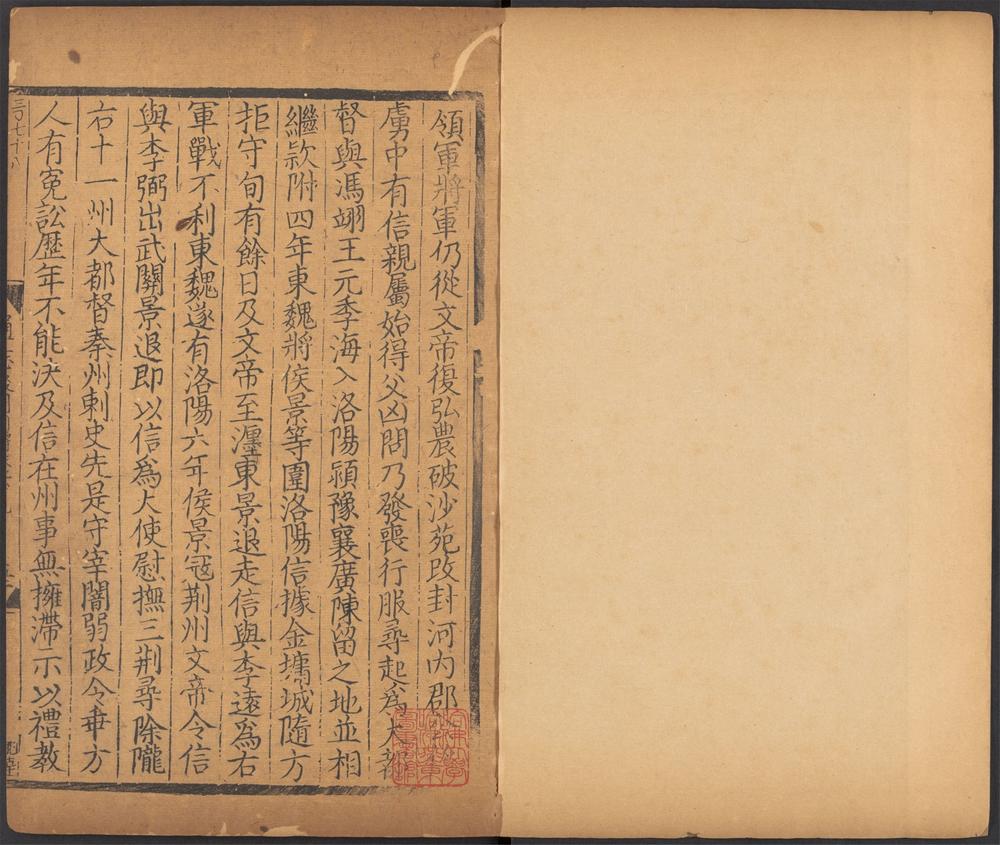 領軍將軍仍從文帝復弘農破沙苑改封河內郡
虜中有信親屬始得父凶問乃發喪行服尋起爲大都
督與馮翊王元季海入洛陽潁豫襄廣陳留之地並相
繼款附四年東魏將侯景等圍洛陽信據金墉城隨方
拒守旬有餘日及文帝至瀍東景退走信與李遠為右
軍戰不利東魏遂有洛陽六年侯景冦荆州文帝令信
與李弼出武關景退即以信爲大使慰撫三荆尋除隴
右十一州大都督秦州刺史先是守宰闇弱政令乖方
人有寃訟歷年不能决及信在州事無擁滯示以禮教
三百七十八